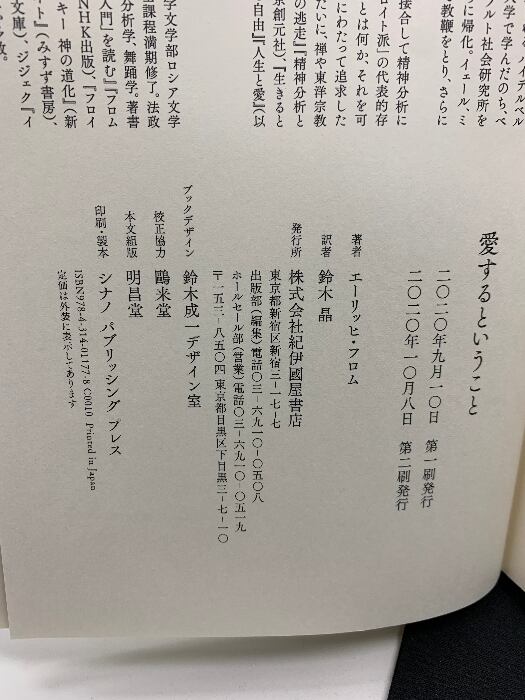 ハイデルベル
大学で学んだのち、ベ
フルト社会研究所を
に帰化。イェール、ミ
教鞭をとり、さらに
接合して精神分析に
ロイト派」の代表的存
とは何か、それを可
にわたって追求した
たいに、禅や東洋宗教
の逃走』『精神分析と
京創元社）、『生きると
自由』『人生と愛』（以
学文学部ロシア文学
士課程満期修了。法政
分析学、舞踊学。著書
入門」を読む』『フロム
NHK出版）、『フロイ
キー 神の道化』（新
ート』（みすず書房）、
文庫）、ジジェク『イ
多数。
愛するということ
二〇二〇年九月一〇日 第一刷発行
二〇二〇年一〇月八日 第二刷発行
著者 エーリッヒ・フロム
訳者 鈴木 晶
発行所 株式会社紀伊國屋書店
東京都新宿区新宿三-一七-七
出版部（編集）電話〇三-六九一〇-〇五〇八
ホールセール部（営業）電話〇三-六九一〇-〇五一九
〒一五三-八五〇四 東京都目黒区下目黒三-七-一〇
ブックデザイン 鈴木成一デザイン室
校正協力 鷗来堂
本文組版 明昌堂
印刷・製本 シナノ パブリッシング プレス
ISBN978-4-314-01177-8 C0010 Printed in Japan
定価は外装に表示してあります